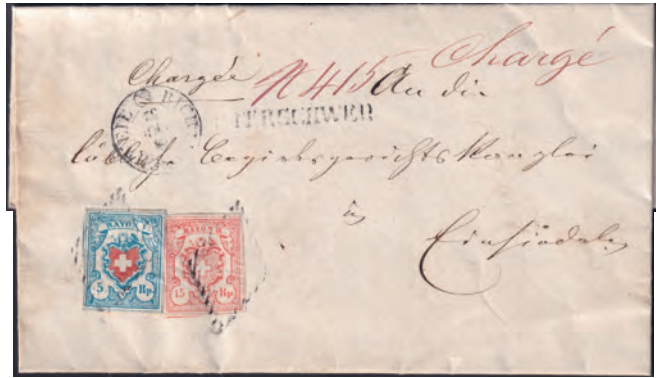 Chargé
Chargée N 415 An die
RICHT
löbliche Bezirksgerichtskanzlei
in
Einsiedeln
RAYON
5 Rp.
RAYON
15 Rp.